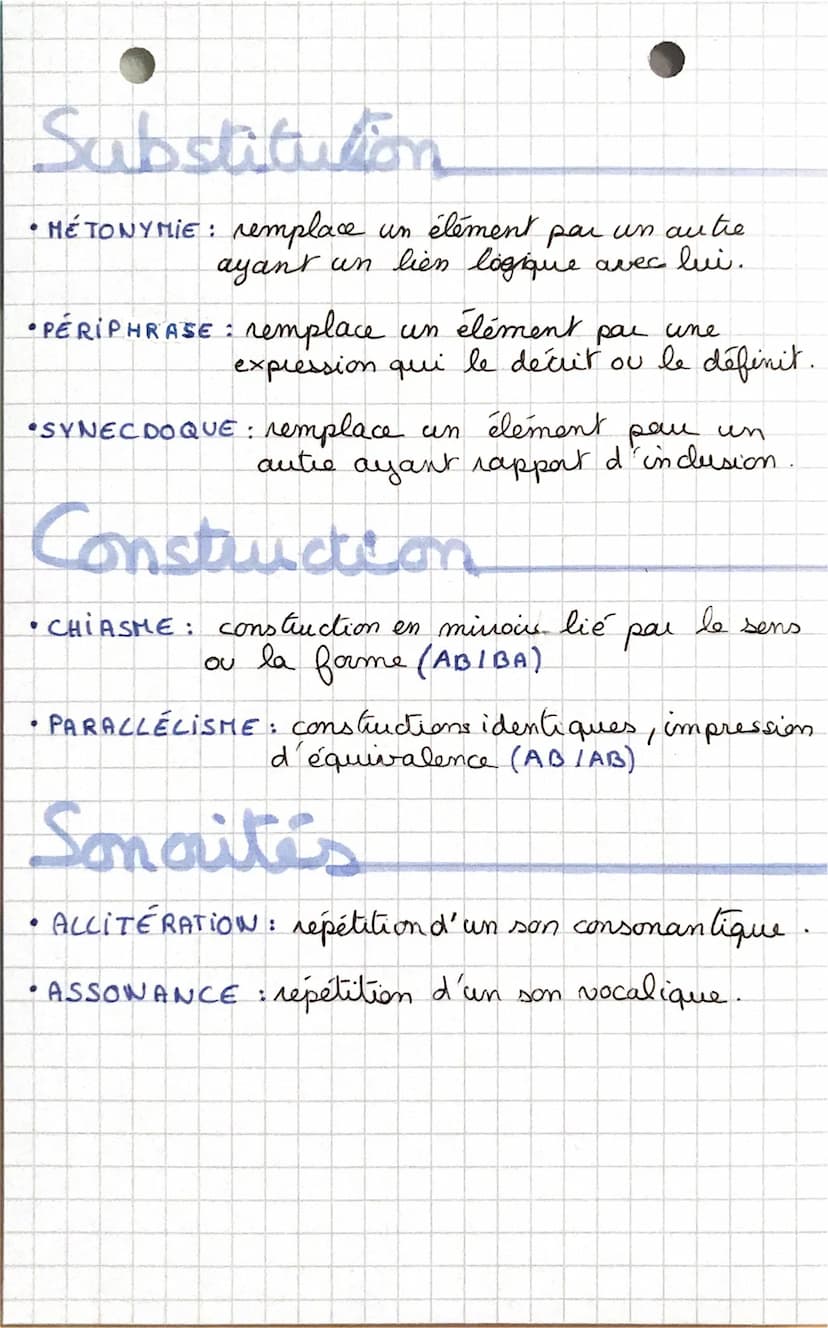 Substitution
• MÉTONYMIE : remplace un élément par un autre
ayant un lien logique avec lui.
• PÉRIPHRASE : remplace un élément par une
expression qui le décrit ou le définit.
• SYNECDOQUE : remplace un élément par un
autre ayant rapport d'inclusion.
Construction
• CHIASME : construction en miroir lié par le sens
ou la forme (AB/BA)
• PARALLÉLISME : constructions identiques, impression
d'équivalence (AB/AB)
Sonorités
• ALLITÉRATION : répétition d'un son consonantique.
• ASSONANCE : répétition d'un son vocalique.